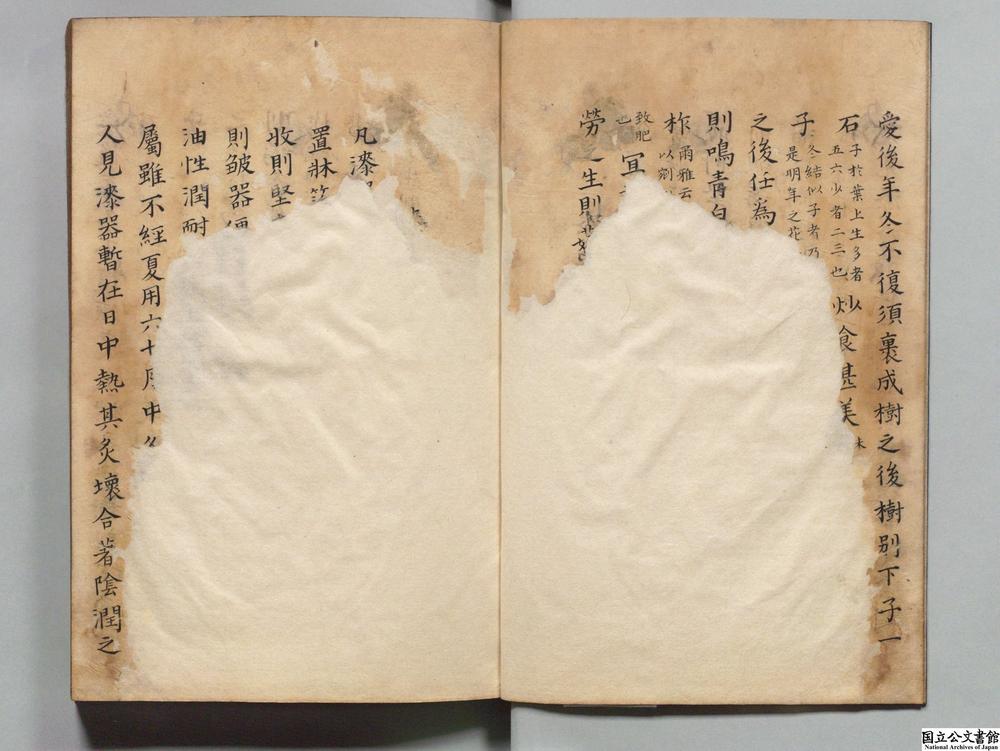 愛後年冬不復須裹成樹之後樹別下子一
石子於葉上生多者五六少者二三也炒食甚美
子冬結似子者乃是明年之花
之後任為
則鳴青白
柞爾雅云以
致肥也宜
勞之生則
凡漆
置牀
收則堅
則皱器便
油性潤耐
屬雖不經夏用六七月中
人見漆器暫在日中熱其炙壞合著陰潤之
国立公文書館
National Archives of Japan